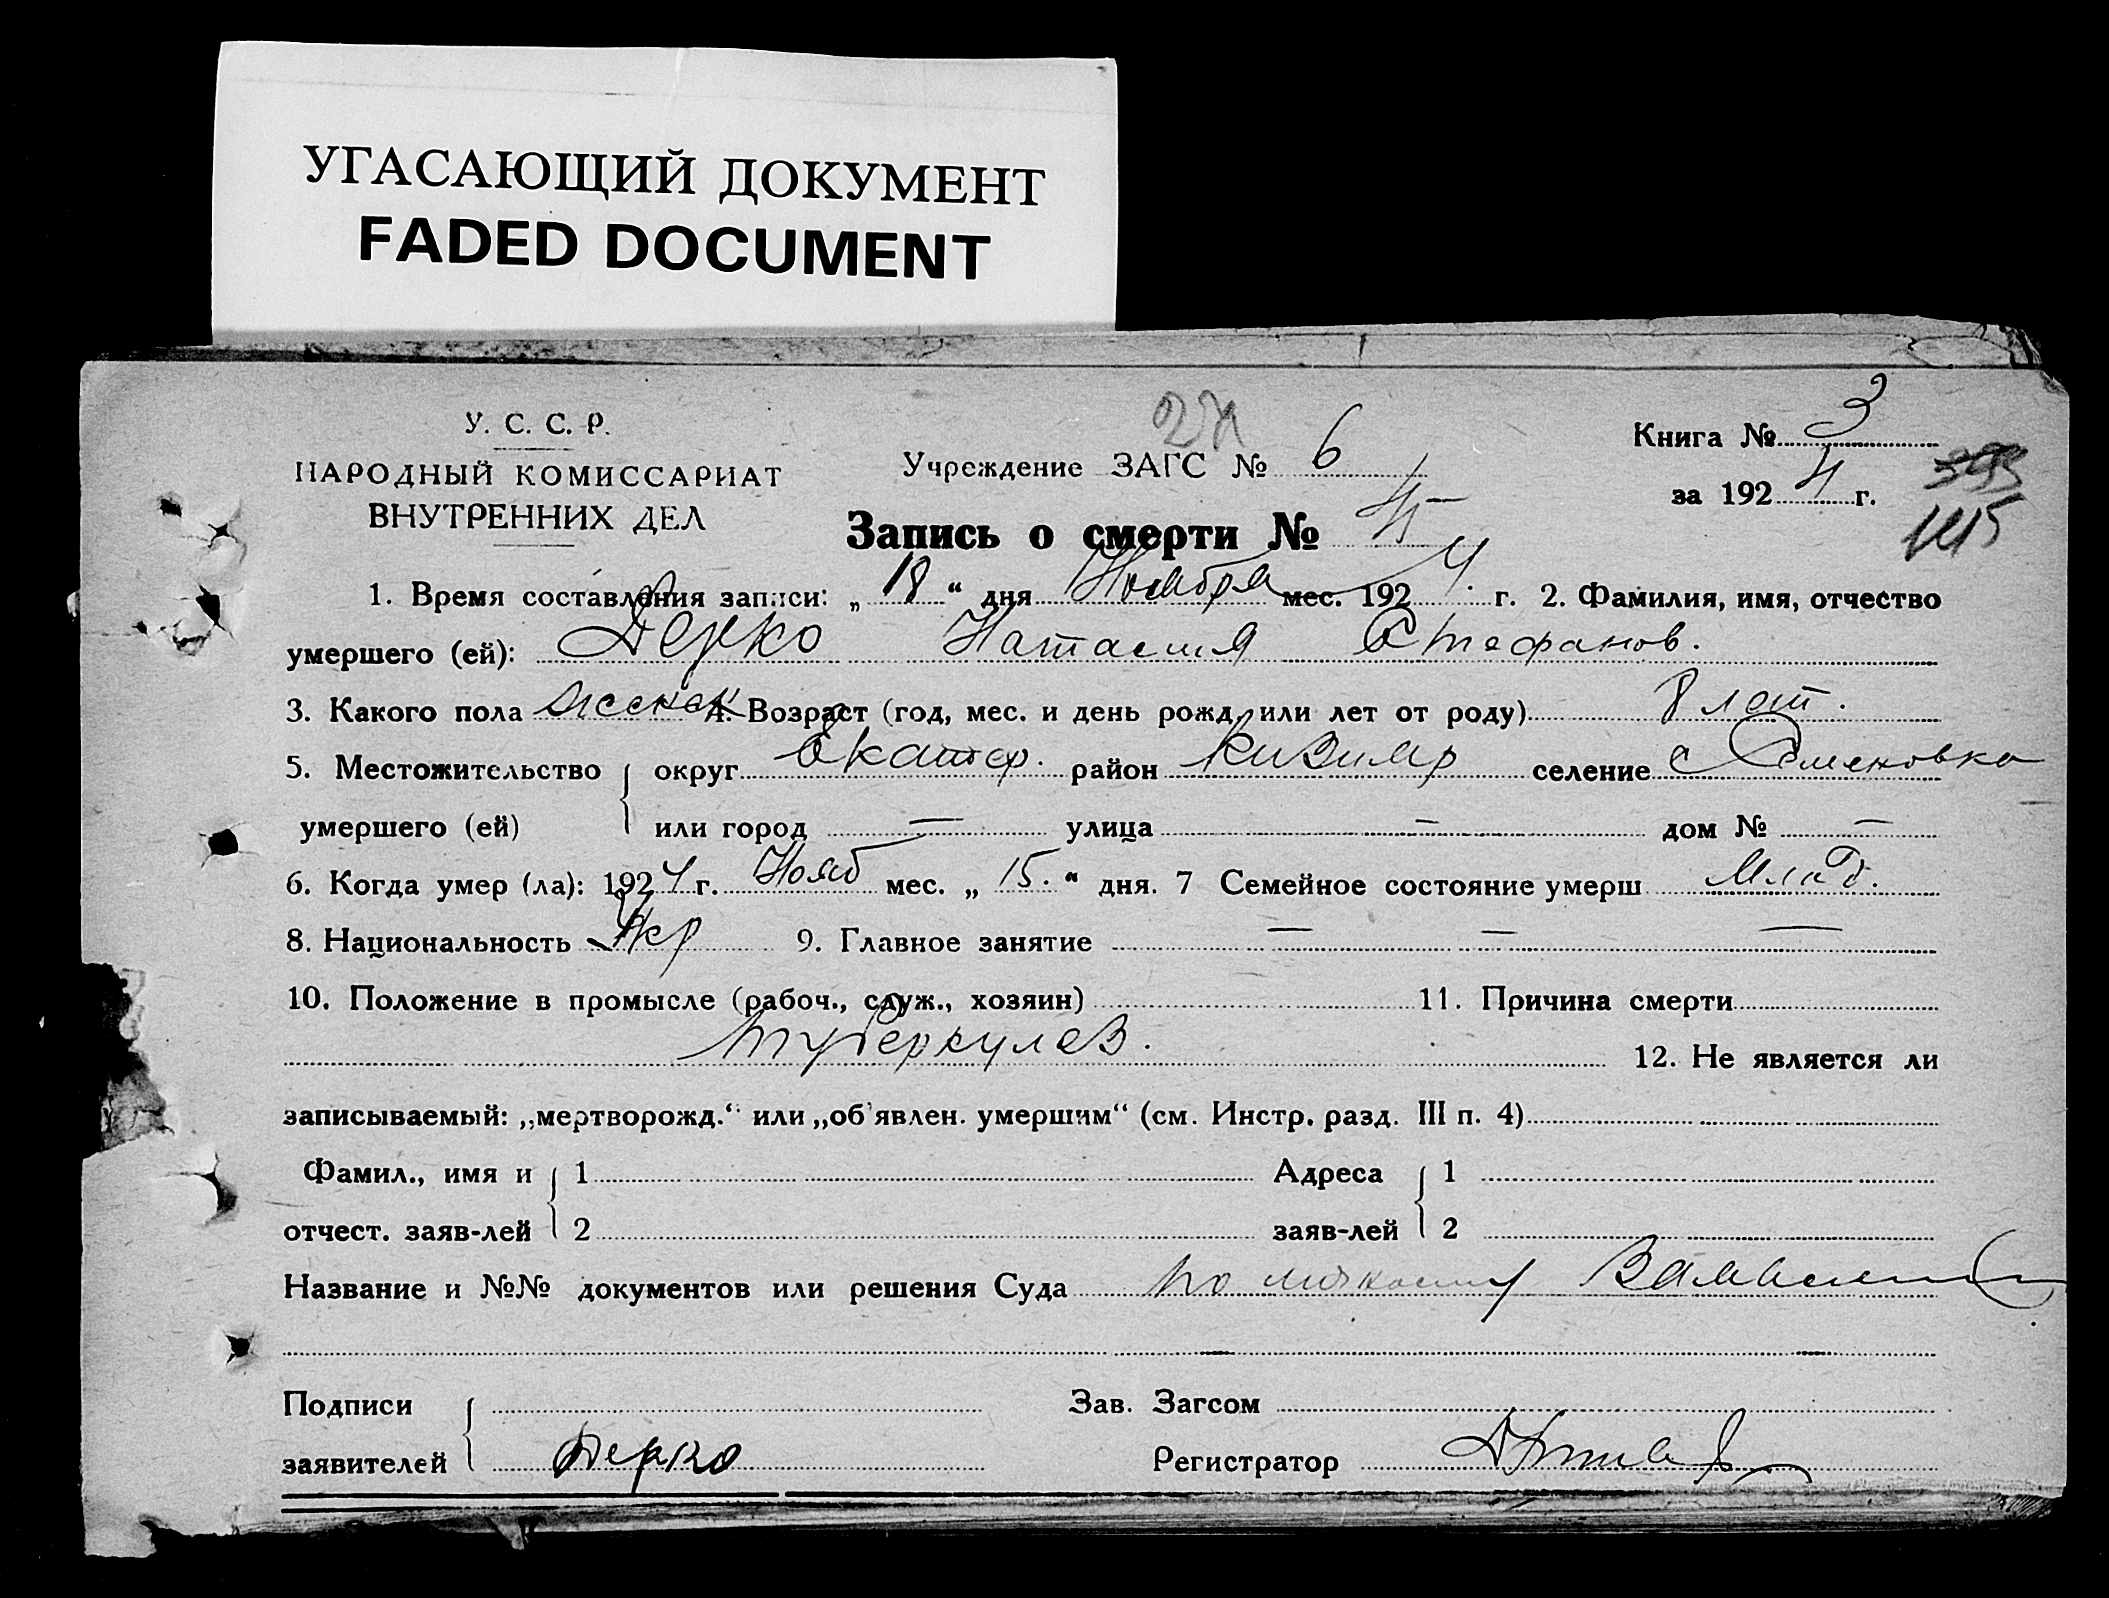 УГАСАЮЩИЙ ДОКУМЕНТ
FADED DOCUMENT
У. С. С. Р.
НАРОДНЫЙ КОМИССАРИАТ
ВНУТРЕННИХ ДЕЛ
Учреждение ЗАГС № 6
Запись о смерти №
Книга № 3
за 1924 г.
1415
1. Время составления записи: „18“ дня Ноября мес. 1924 г. 2. Фамилия, имя, отчество
умершего (ей): Дерко Наталия Стефанов.
3. Какого пола женск 4. Возраст (год, мес. и день рожд. или лет от роду) 8 лет.
5. Местожительство округ Екатер. район селение с Семеновка
умершего (ей) или город — улица — дом № —
6. Когда умер (ла): 1924 г. Нояб мес. „15.“ дня. 7 Семейное состояние умерш Млад.
8. Национальность Укр 9. Главное занятие — — —
10. Положение в промысле (рабоч., служ., хозяин) 11. Причина смерти
туберкулез. 12. Не является ли
записываемый: „мертворожд.“ или „об'явлен. умершим“ (см. Инстр. разд. III п. 4)
Фамил., имя и 1 Адреса 1
отчест. заяв-лей 2 заяв-лей 2
Название и №№ документов или решения Суда по
Подписи Зав. Загсом
заявителей Дерко Регистратор